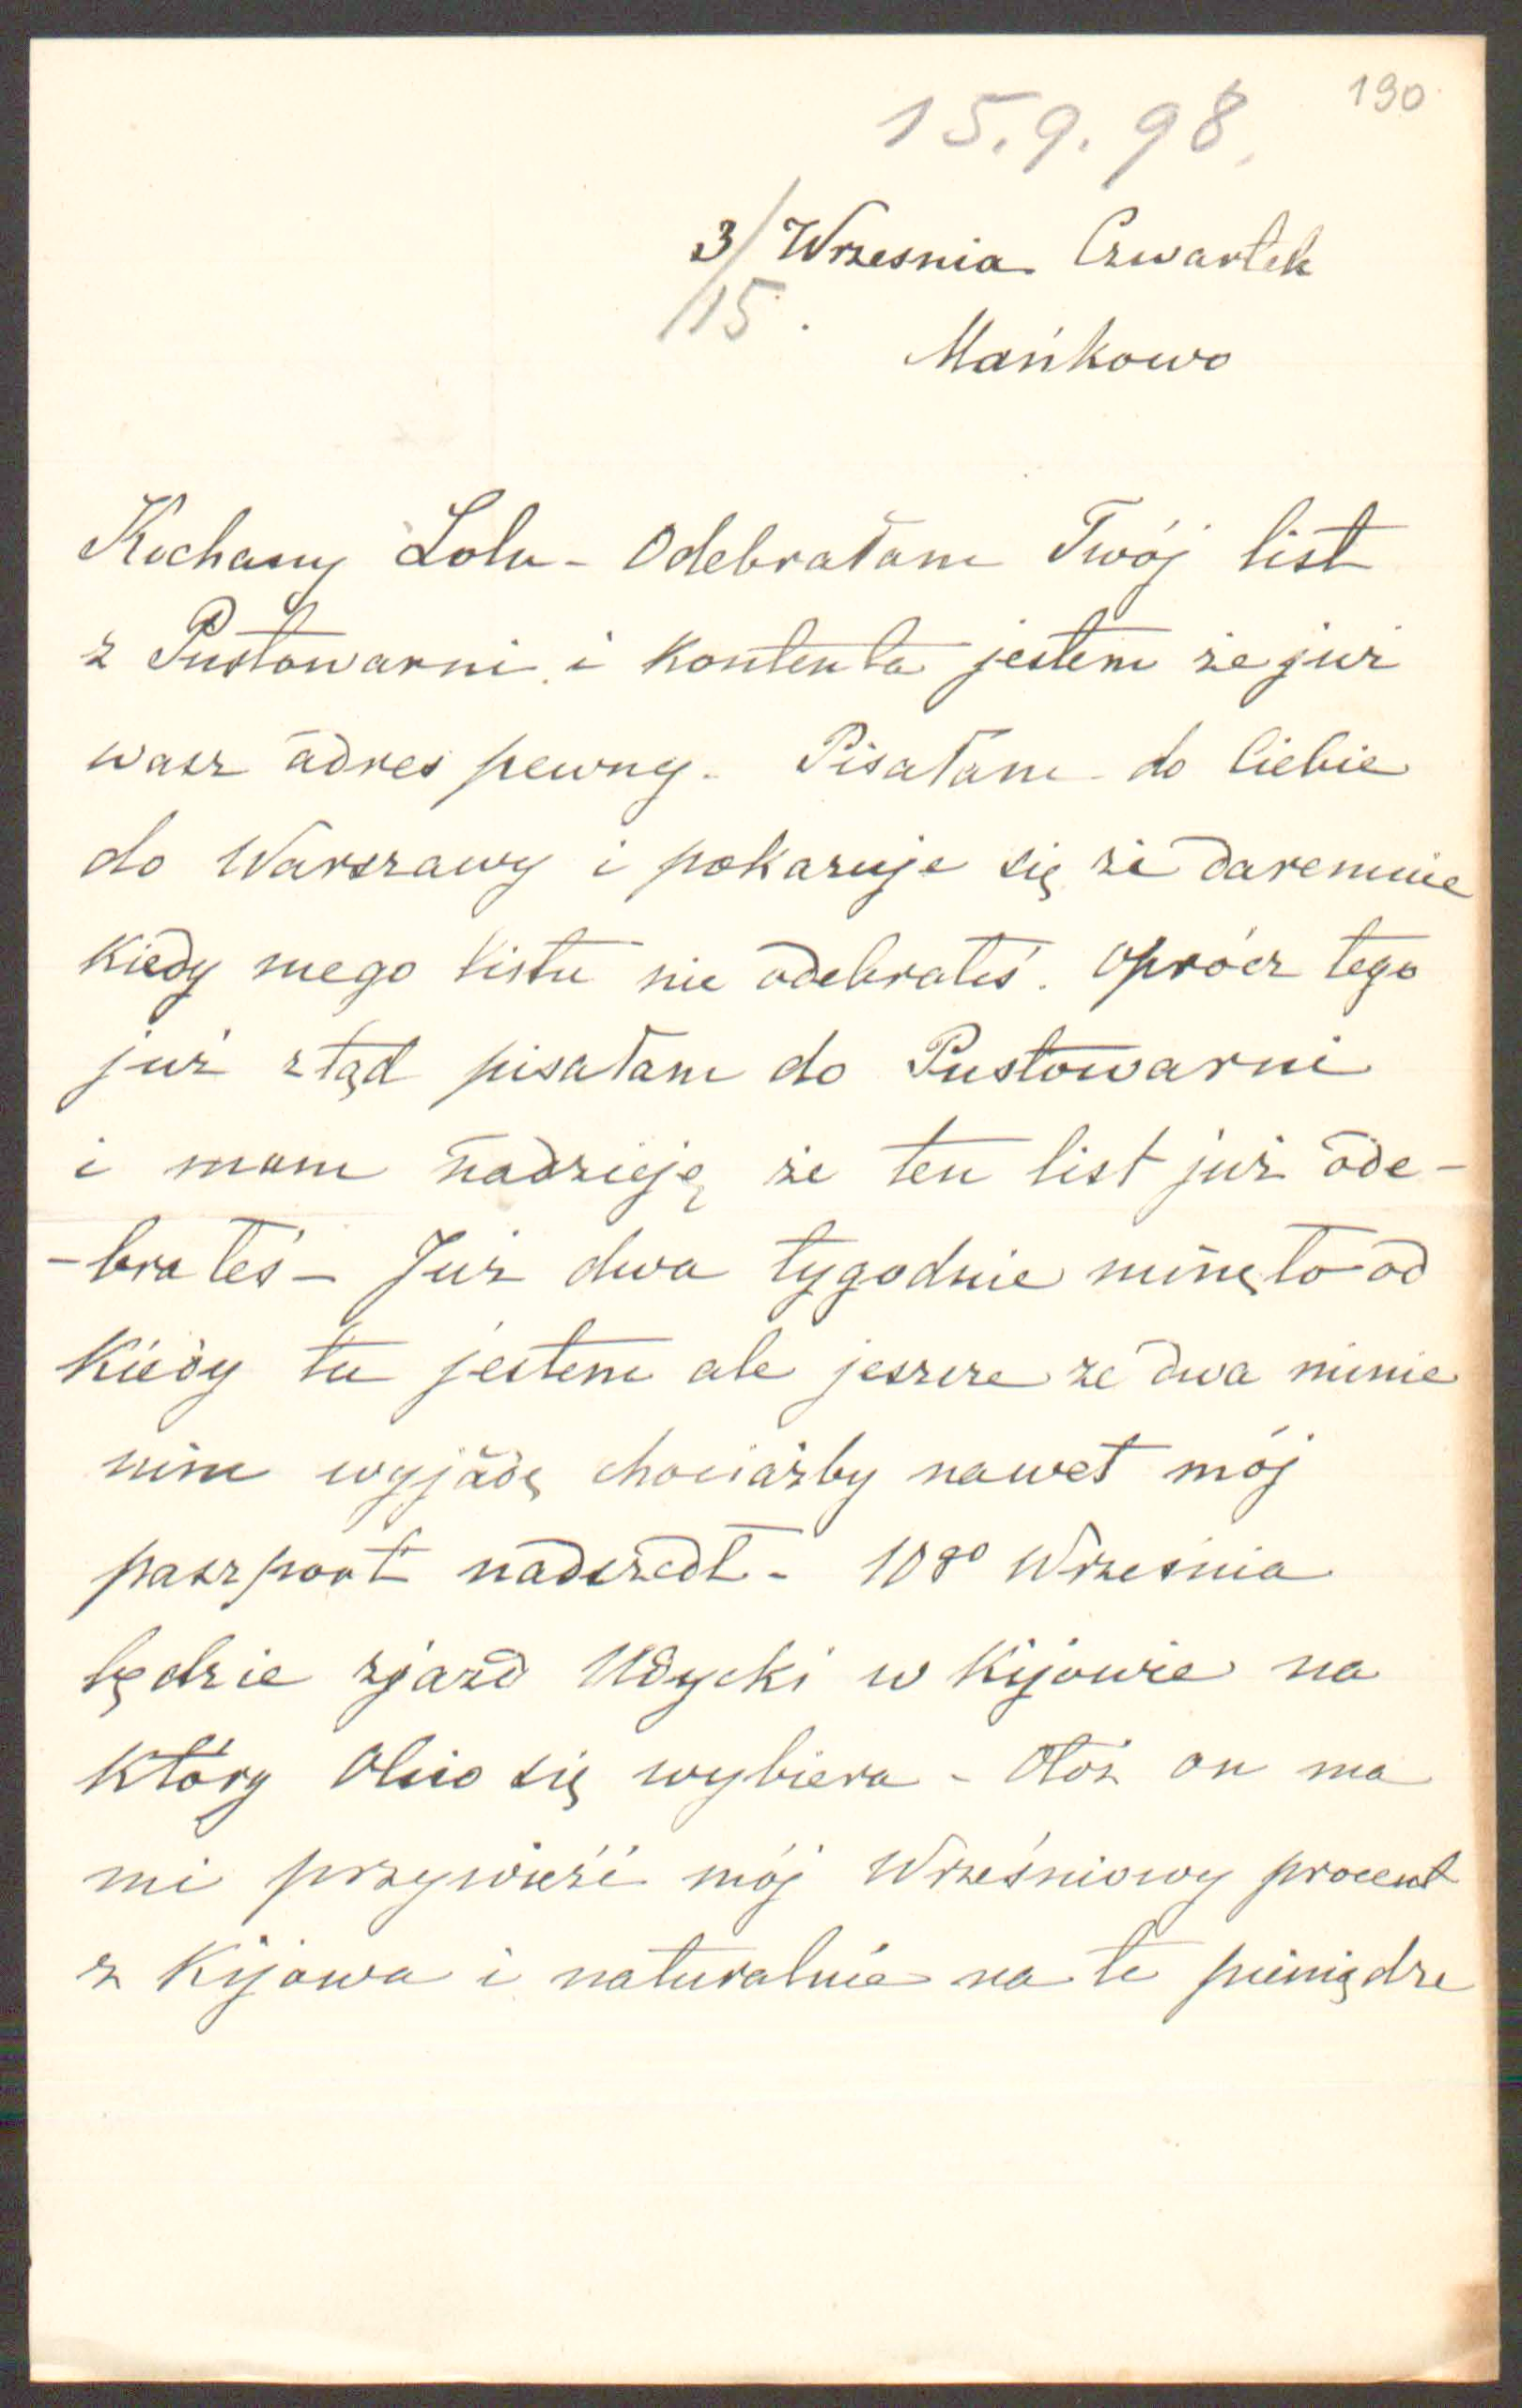 190
15.9.98.
3/ Wrzesnia Czwartek
/15.
Mańkowo
Kochany Lolu - Odebrałam Twój list
z Pustowarni i kontenta jestem że już
wasz adres pewny. Pisałam do Ciebie
do Warszawy i pokazuje się że daremnie
kiedy mego listu nie odebrałeś. Oprócz tego
już ztąd pisałam do Pustowarni
i mam nadzieję że ten list już ode-
-brałeś - Już dwa tygodnie minęło od
kiedy tu jestem ale jeszcze ze dwa minie
nim wyjadę chociażby nawet mój
paszport nadszedł - 10go Września
będzie zjazd Udycki w Kijowie na
który Olsio się wybiera - Otóż on ma
mi przywieźć mój Wrześniowy procent
z Kijowa i naturalnie na te pieniądze